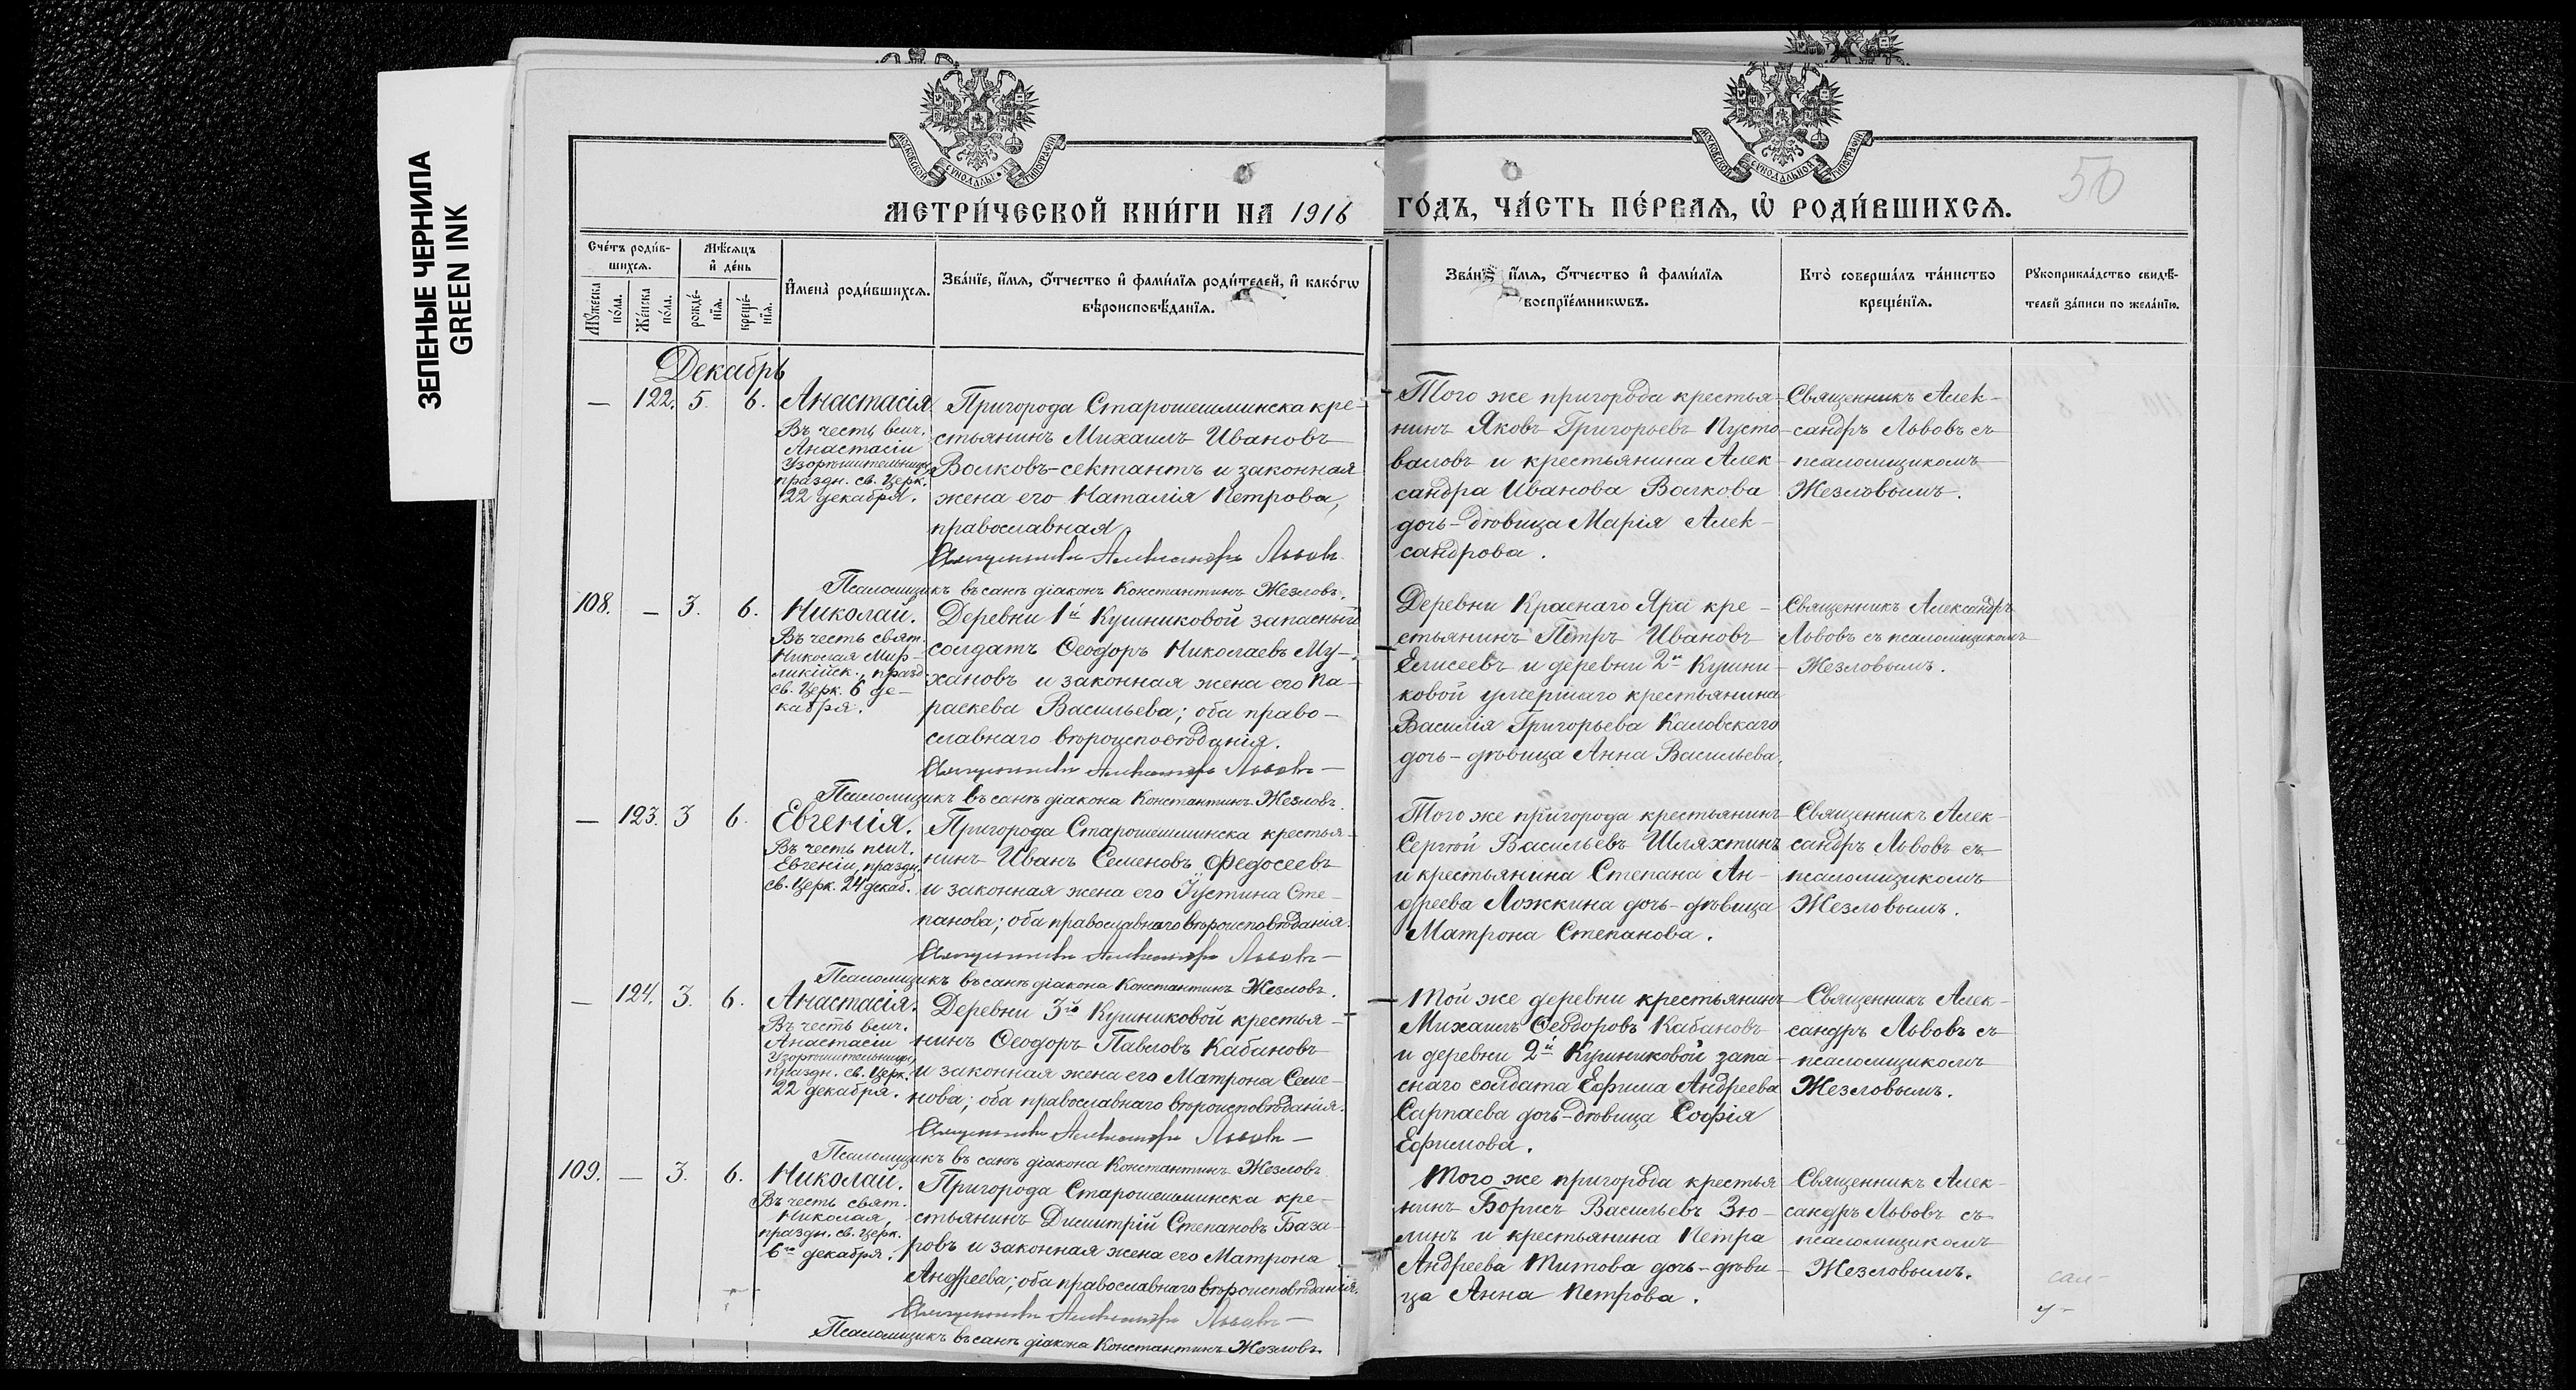 ЗЕЛЕНЫЕ ЧЕРНИЛА
GREEN INK
МОСКОВСКОЙ СѴНОДАЛЬНОЙ ТИПОГРАФІИ
МОСКОВСКОЙ СѴНОДАЛЬНОЙ ТИПОГРАФІИ
50
МЕТРИ́ЧЕСКОЙ КНИ́ГИ НА 1916 ГО́ДЪ, ЧА́СТЬ ПЕ́РВАЯ, Ѡ РОДИ́ВШИХСЯ.
Сче́тъ роди́в-
шихся.
Мѣ́сяцъ
и де́нь
Му́жеска
по́ла.
Же́нска
по́ла.
рожде́-
нія.
креще́-
нія.
Имена̀ роди́вшихся.
Зва́ніе, и́мя, о́тчество и фами́лія роди́телей, и како́гѡ
вѣроисповѣ́данія.
Зва́ніе, и́мя, о́тчество и фами́лія
воспріе́мниковъ.
Кто̀ соверша́лъ та́инство
креще́нія.
Рукоприкла́дство свидѣ́-
телей за́писи по жела́нію.
Декабрь
— 122. 5. 6.
Анастасія
Въ честь велч.
Анастасіи
Узорѣшительницы,
праздн. св. Церк.
22 декабря.
Пригорода Старошешминска кре-
стьянинъ Михаилъ Ивановъ
Волковъ-сектантъ и законная
жена его Наталія Петрова,
православная
Священникъ Александръ Львовъ
Псаломщикъ въ санѣ діаконъ Константинъ Жезловъ.
Того же пригорода крестья-
нинъ Яковъ Григорьевъ Пусто-
валовъ и крестьянина Алек-
сандра Иванова Волкова
дочь-дѣвица Марія Алек-
сандрова.
Священникъ Алек-
сандръ Львовъ съ
псаломщикомъ
Жезловымъ.
108. — 3. 6.
Николай.
Въ честь свят.
Николая Мир-
ликійск., празд.
св. Церк. 6 де-
кабря.
Деревни 1й Кушниковой запасный
солдатъ Ѳеодоръ Николаевъ Му-
хановъ и законная жена его Па-
раскева Васильева; оба право-
славнаго вѣроисповѣданія.
Священникъ Александръ Львовъ —
Псаломщикъ въ санѣ діакона Константинъ Жезловъ.
Деревни Краснаго Яра кре-
стьянинъ Петръ Ивановъ
Елисеевъ и деревни 2й Кушни-
ковой умершаго крестьянина
Василія Григорьева Каловскаго
дочь-дѣвица Анна Васильева.
Священникъ Александръ
Львовъ съ псаломщикомъ
Жезловымъ.
— 123. 3 6.
Евгенія.
Въ честь
Евгеніи, праздн.
св. Церк. 24 декаб.
Пригорода Старошешминска крестья-
нинъ Иванъ Семеновъ Федосеевъ
и законная жена его Іустина Сте-
панова; оба православнаго вѣроисповѣданія.
Священникъ Александръ Львовъ —
Псаломщикъ въ санѣ діакона Константинъ Жезловъ.
Того же пригорода крестьянинъ
Сергѣй Васильевъ Шляхтинъ
и крестьянина Степана Ан-
дреева Ложкина дочь-дѣвица
Матрона Степанова.
Священникъ Алек-
сандръ Львовъ съ
псаломщикомъ
Жезловымъ.
— 124. 3. 6.
Анастасія.
Въ честь велч.
Анастасіи
Узорѣшительницы,
праздн. св. Церк.
22 декабря.
Деревни 3й Кушниковой крестья-
нинъ Ѳеодоръ Павловъ Кабановъ
и законная жена его Матрона Семе-
нова; оба православнаго вѣроисповѣданія.
Священникъ Александръ Львовъ —
Псаломщикъ въ санѣ діакона Константинъ Жезловъ
Той же деревни крестьянинъ
Михаилъ Ѳеодоровъ Кабановъ
и деревни 2й Кушниковой запа-
снаго солдата Ефима Андреева
Сарпаева дочь-дѣвица Софія
Ефимова.
Священникъ Алек-
сандръ Львовъ съ
псаломщикомъ
Жезловымъ.
109. — 3. 6.
Николай.
Въ честь свят.
Николая,
праздн. св. Церк.
6го декабря.
Пригорода Старошешминска кре-
стьянинъ Димитрій Степановъ База-
ровъ и законная жена его Матрона
Андреева; оба православнаго вѣроисповѣданія.
Священникъ Александръ Львовъ —
Псаломщикъ въ санѣ діакона Константинъ Жезловъ.
Того же пригорода крестья
нинъ Борисъ Васильевъ Зю-
линъ и крестьянина Петра
Андреева Титова дочь-дѣви-
ца Анна Петрова.
Священникъ Алек-
сандръ Львовъ съ
псаломщикомъ
Жезловымъ.